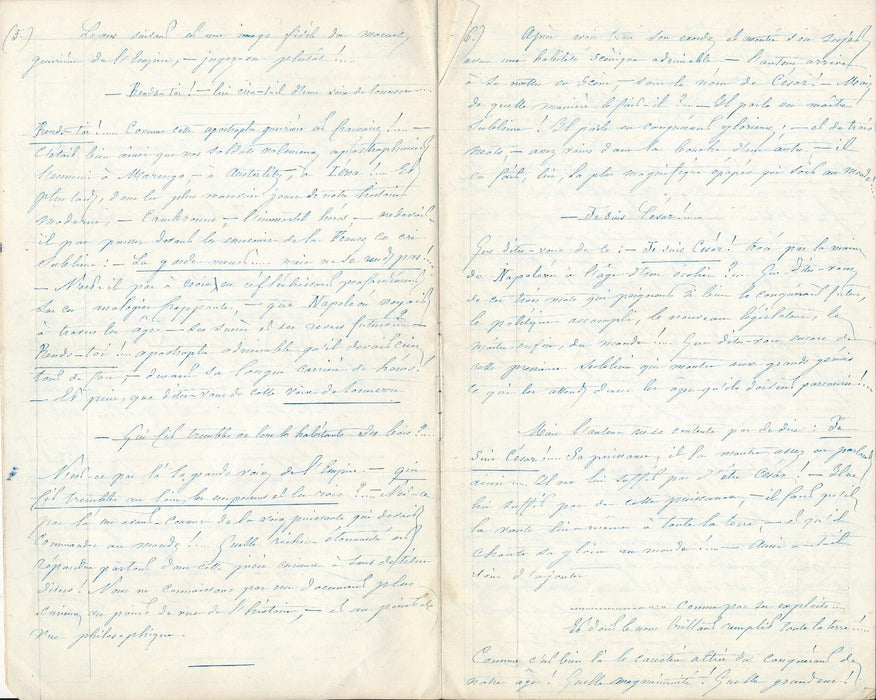 (5.) Le vers suivant est une image fidèle des moeurs
guerrières de l'Empire, — jugez-en plutôt !...
— Rends-toi ! — lui cria-t-il d'une voix de tonnerre...
Rends-toi !.... Comme cette apostrophe guerrière est française !... —
C'était bien ainsi que nos soldats valeureux apostrophaient
l'ennemi à Marengo — à Austerlitz, à Iéna !... Et
plus tard, dans les plus mauvais jours de notre histoire
moderne, — Cambronne — l'immortel héros — ne devait-
il pas pousser devant les ennemis de la France ce cri
sublime : — La garde meurt... mais ne se rend pas !...
— N'est-il pas à croire, en réfléchissant profondément
sur ces analogies frappantes, — que Napoléon voyait
à travers les âges — ses succès et ses revers futurs —
Rends-toi !! apostrophe admirable qu'il devait crier
tant de fois, — durant sa longue carrière de héros !
— Et puis, que dites-vous de cette voix de tonnerre
— Qui fait trembler au loin les habitants des bois ?...
N'est-ce pas là la grande voix de l'Empire — qui
fait trembler au loin les empereurs et les rois ? — N'est-ce
pas là l'avant-coureur de la voix puissante qui devait
commander au monde !... Quelle richesse étonnante est
répandue partout dans cette pièce curieuse à tant de titres
divers ! Nous ne connaissons pas un document plus
curieux au point de vue de l'histoire, — et au point de
vue philosophique.
6.) Après avoir bien son exorde, et montré son sujet
avec une habileté scénique admirable — l'auteur arrive
à se mettre en scène, — sous le nom de César ! — Mais
de quelle manière le fait-il ?... — Il parle en maître
sublime ! Il parle en conquérant glorieux ; — et de trois
mots, — assez vains dans la bouche d'un autre, — il
en fait, lui, la plus magnifique épopée qui soit au monde !
— Je suis César !...
Que dites-vous de ce : — Je suis César ! tracé par la main
de Napoléon à l'âge d'un écolier ?... Que dites-vous
de ces trois mots qui peignent si bien le conquérant futur,
le politique accompli, le nouveau législateur, le
maître enfin, du monde !... Que dites-vous encore de
cette prescience sublime qui montre aux grands génies
ce qui les attend dans les âges qu'ils doivent parcourir !...
Mais l'auteur ne se contente pas de dire : Je
suis César ! Sa puissance, il la montre assez en parlant
ainsi... Il ne lui suffit pas d'être César ! — Il ne
lui suffit pas de cette puissance, — il faut qu'il
la vante lui-même à toute la terre, — et qu'il
chante sa gloire au monde !... — Aussi a-t-il
soin d'ajouter
................ connu par ses exploits...
Et dont le nom brillant remplit toute la terre !...
Comme c'est bien là le caractère altier du conquérant de
notre âge ! Quelle magnanimité ! Quelle grandeur !